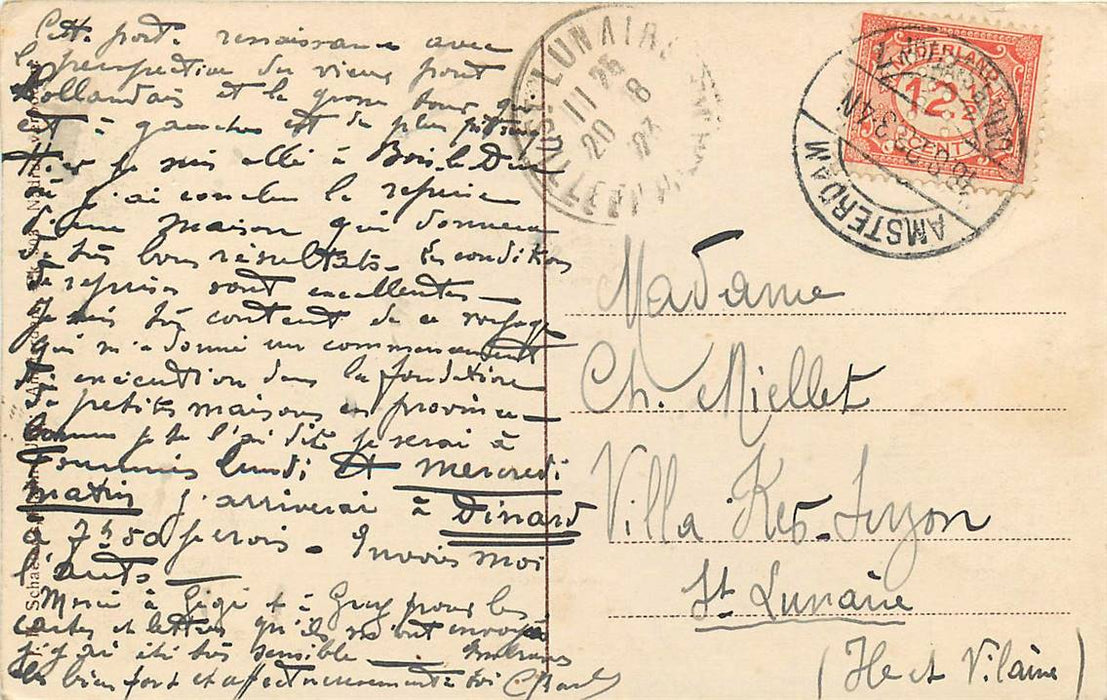 Cette porte renaissance avec
la perspective du vieux pont
Hollandais et la grosse tour qui
est à gauche est de plus
Hier je suis allé à Bois le Duc
où j'ai conclu la reprise
d'une maison qui donnera
de très bons résultats. Les conditions
de reprises sont excellentes
Je suis très content de ce voyage
qui m'a donné un commencement
d'exécution dans la fondation
de petites maisons en province
comme je te l'ai dit je serai à
lundi et mercredi
matin j'arriverai à Dinard
à 7h50 je crois. Envoies moi
l'auto
Merci à Gigi et à Guy pour les
cartes et lettres qu'ils m'ont envoyé
j'y ai été très sensible
bien fort et affectueusement à toi Charles
ST LUNAIRE
11 25
20 8
23
ILLE ET VILAINE
NEDERLAND
12½
CENT
AMSTERDAM
Madame
Ch. Miellet
Villa Ker Suzon
St. Lunaire
(Ille et Vilaine)